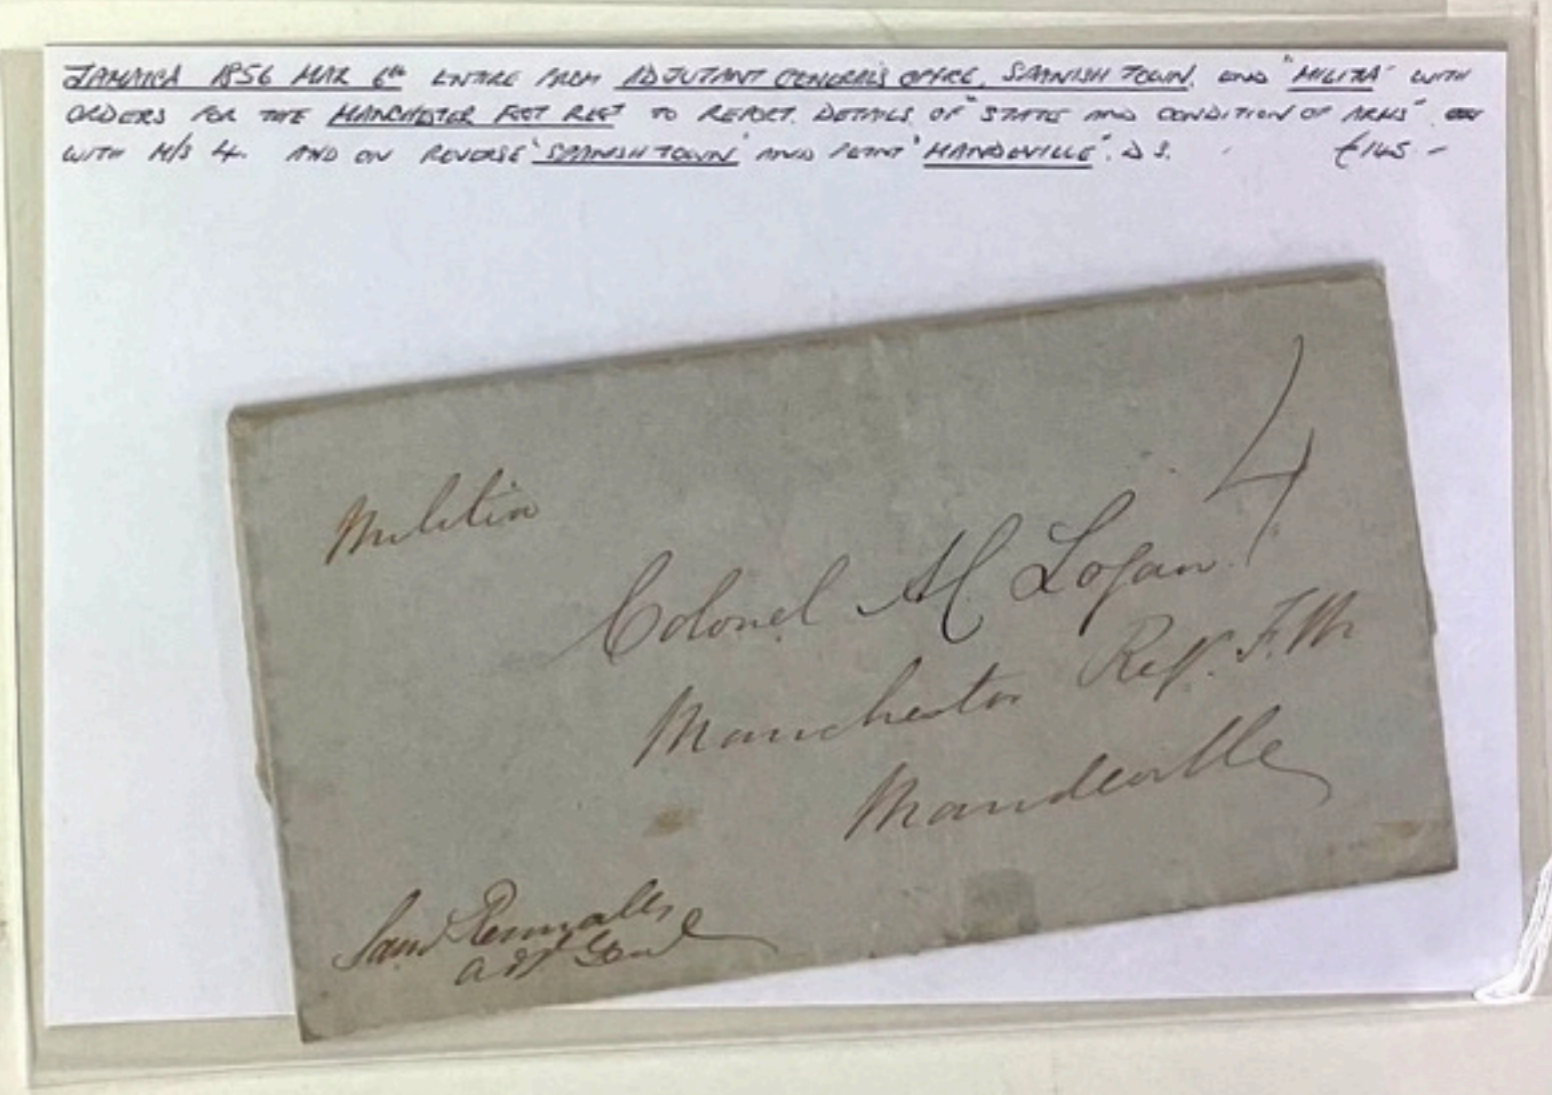 JAMAICA 1856 MAR 6th ENTIRE FROM ADJUTANT GENERAL'S OFFICE, SPANISH TOWN, END "MILITIA" WITH
ORDERS FOR THE MANCHESTER FOOT REGT TO REPORT DETAILS OF "STATE AND CONDITION OF ARMS"
WITH M/S 4. AND ON REVERSE 'SPANISH TOWN' AND FAINT 'MANDEVILLE'. D.S. £145 -
4
Militia
Colonel Logan
Manchester Regt. F. M
Mandeville
Saml Rennalls
Adjt Genl